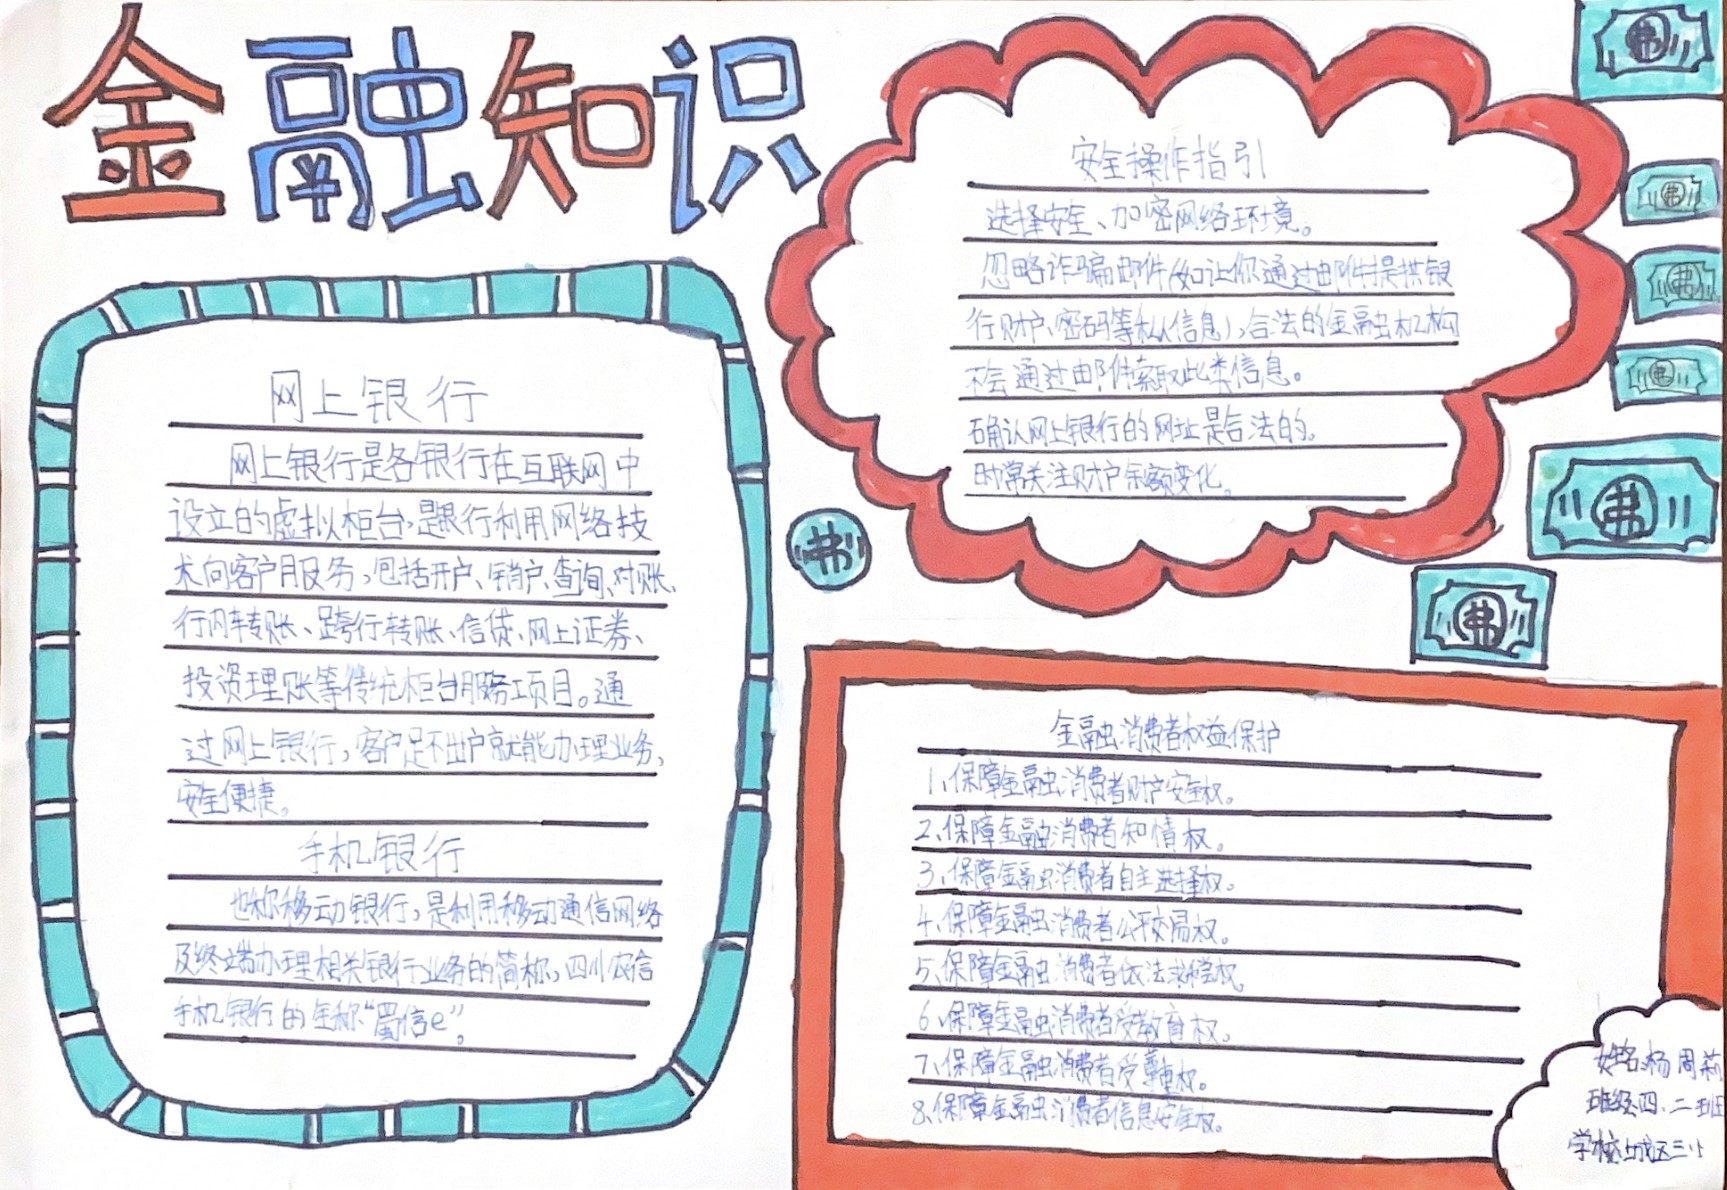 金融知识
网上银行
网上银行是各银行在互联网中
设立的虚拟柜台,是银行利用网络技
术向客户用服务,包括开户、销户、查询、对账、
行内转账、跨行转账、信贷、网上证券、
投资理账等传统柜台服务项目。通
过网上银行,客户足不出户就能办理业务,
安全便捷。
手机银行
也称移动银行,是利用移动通信网络
及终端办理相关银行业务的简称,四川农信
手机银行的全称“蜀信e”。
安全操作指引
选择安全、加密网络环境。
忽略诈骗邮件(如让你通过邮件提供银
行财户、密码等私信息),合法的金融机构
不会通过邮件索取此类信息。
确认网上银行的网址是合法的。
时常关注财户余额变化。
金融消费者权益保护
1、保障金融消费者财产安全权。
2、保障金融消费者知情权。
3、保障金融消费者自主选择权。
4、保障金融消费者公平交易权。
5、保障金融消费者依法求偿权。
6、保障金融消费者受教育权。
7、保障金融消费者受尊重权。
8、保障金融消费者信息安全权。
姓名:杨周莉
班级:四、二班
学校:城区三小